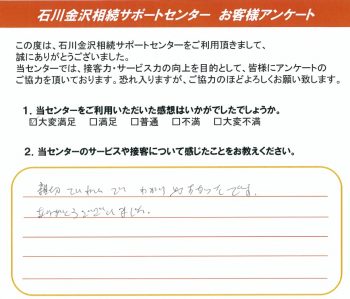 石川金沢相続サポートセンター お客様アンケート
この度は、石川金沢相続サポートセンターをご利用頂きまして、
誠にありがとうございました。
当センターでは、接客力・サービス力の向上を目的として、皆様にアンケートの
ご協力を頂いております。恐れ入りますが、ご協力のほどよろしくお願い致します。
1. 当センターをご利用いただいた感想はいかがでしたでしょうか。
☑大変満足 □満足 □普通 □不満 □大変不満
2. 当センターのサービスや接客について感じたことをお教えください。
親切ていねいで わかりやすかったです。
ありがとうございました。